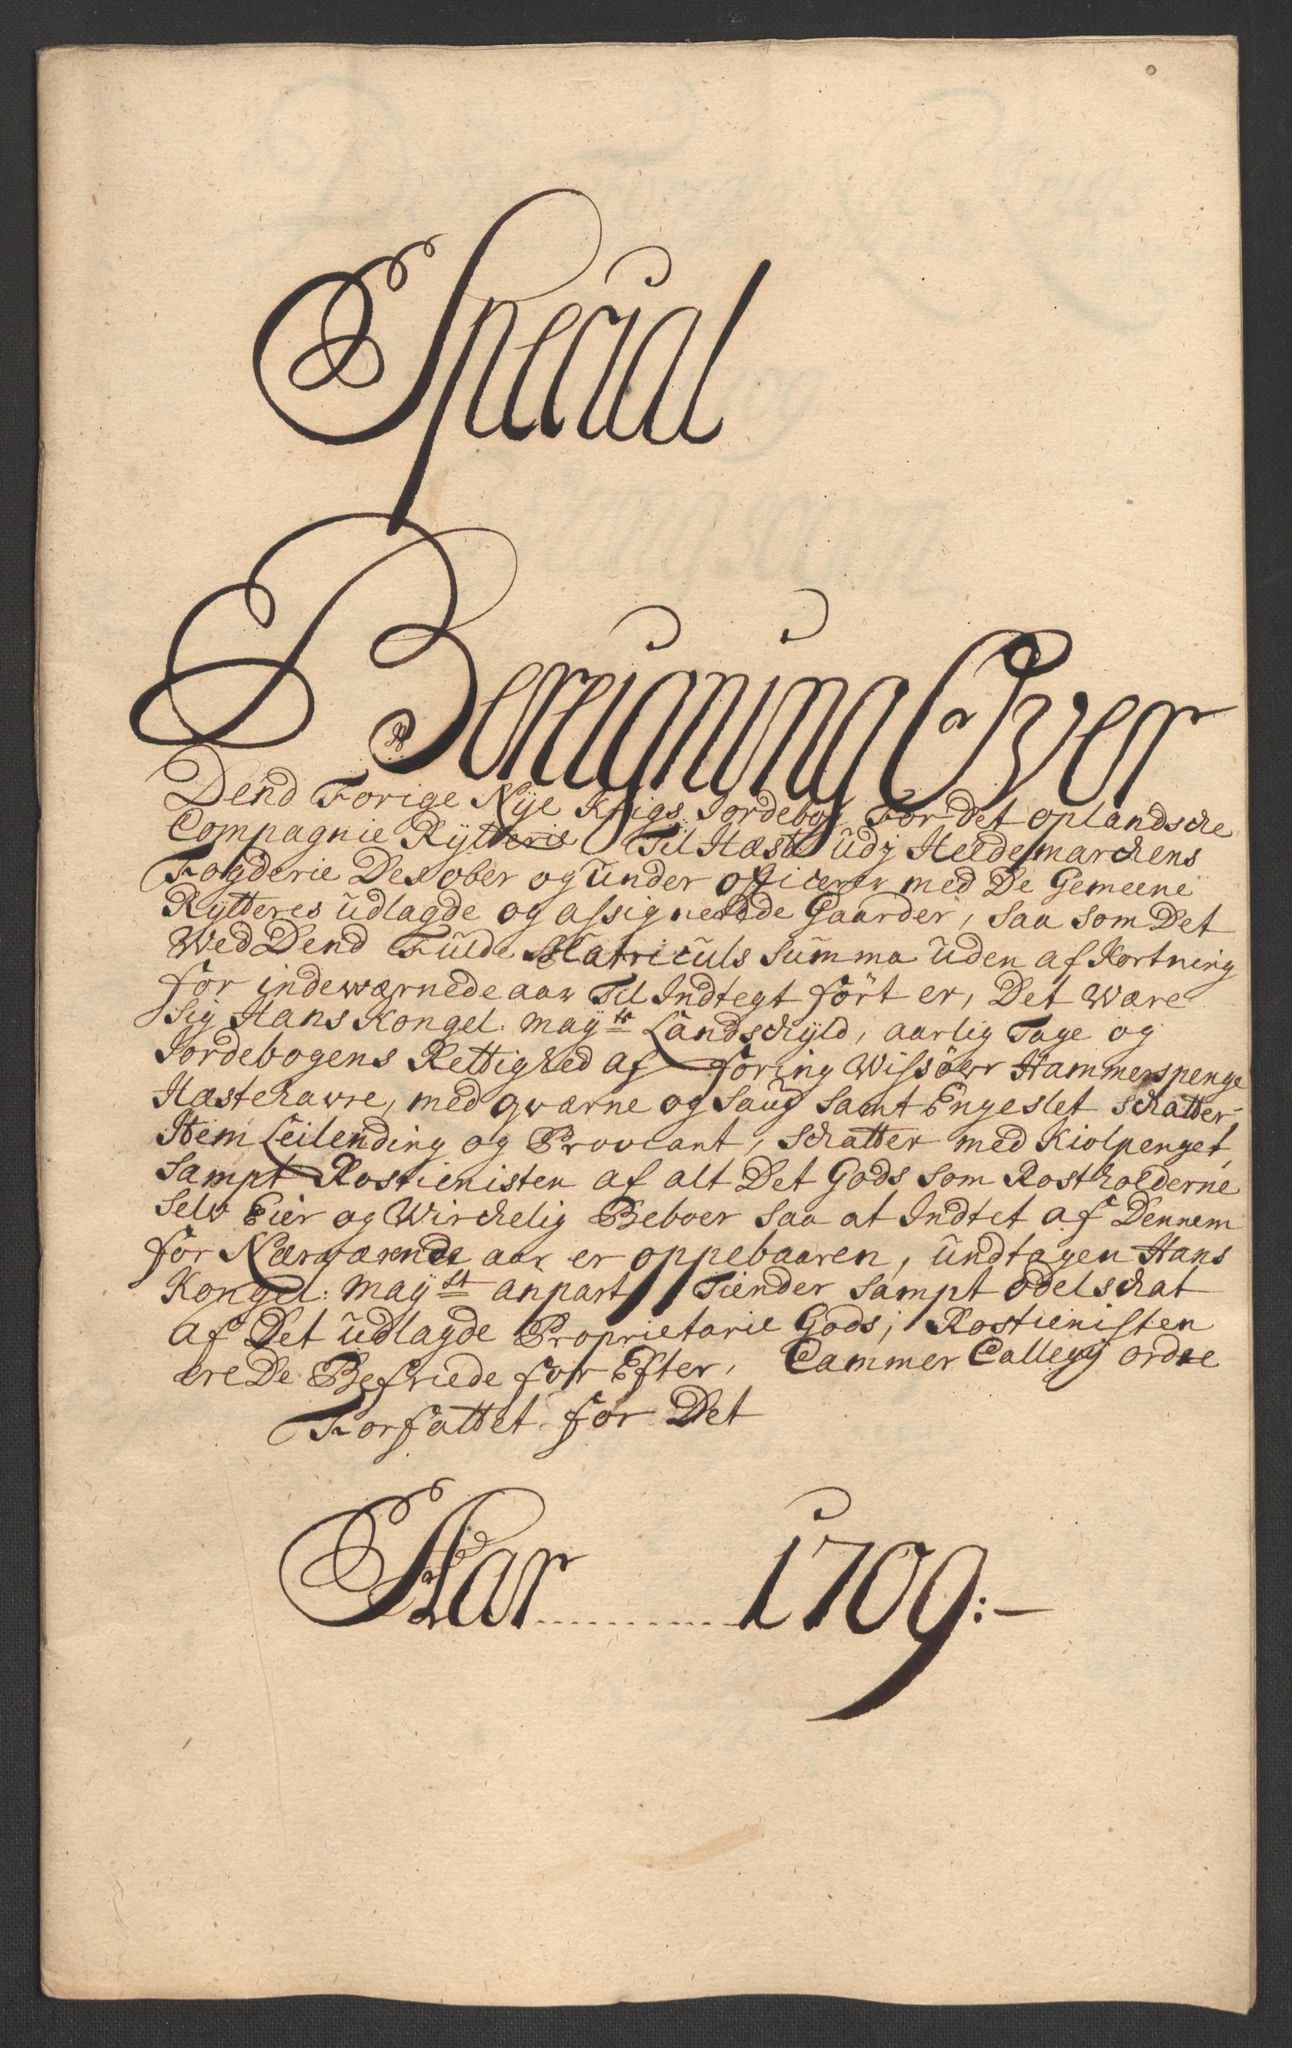 Special
Bereigning Over
Dend Forige Nÿe Krigs Jordebog For det oplandsche
Compagnie Rÿttere Til Hæst udj Heedemarchens
Fogderie Des ober og under officerer med De Gemeene
Rÿtteres udlagde og assignerede Gaarder, saa som Det
Wed Dend Fulde Matriculs Summa uden afkortning
for indewærnede aar Til Indtegt ført er, Det være
Sig Hans Kongel: Maÿts Landschÿld, aarlig Tage og
Jordebogens Rettighed af foring Wissøer Hammerspenge
Hæstehavre, med qværne og Saug samt Engeslet Schatter
Item Leilending og Proviant, schatter med Kiolpenget,
Sampt Rostienisten af alt Det Gods som Rostholderne
Selv Eier og Wirchelig Beboer saa at Indtet af Dennem
for Nærværende aar er oppebaaren, undtagen Hans
Kongel: Maÿst anpart Tiender Sampt odelschat
af Det udlagde Proprietarie Gods, Rostienisten
ere De Befriede for Efter, Cammer Collegij ordre
Forfattet for Det
Aar ......... 1709:-